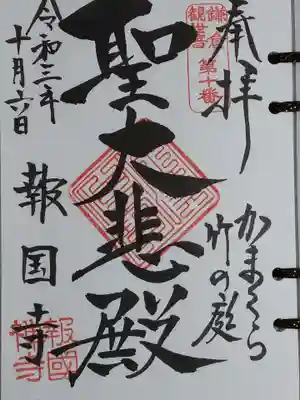 奉拝
鎌倉
観世音
第十番
かまくら
竹の庭
聖大悲殿
令和三年
十月六日
報国寺
報國
禅寺